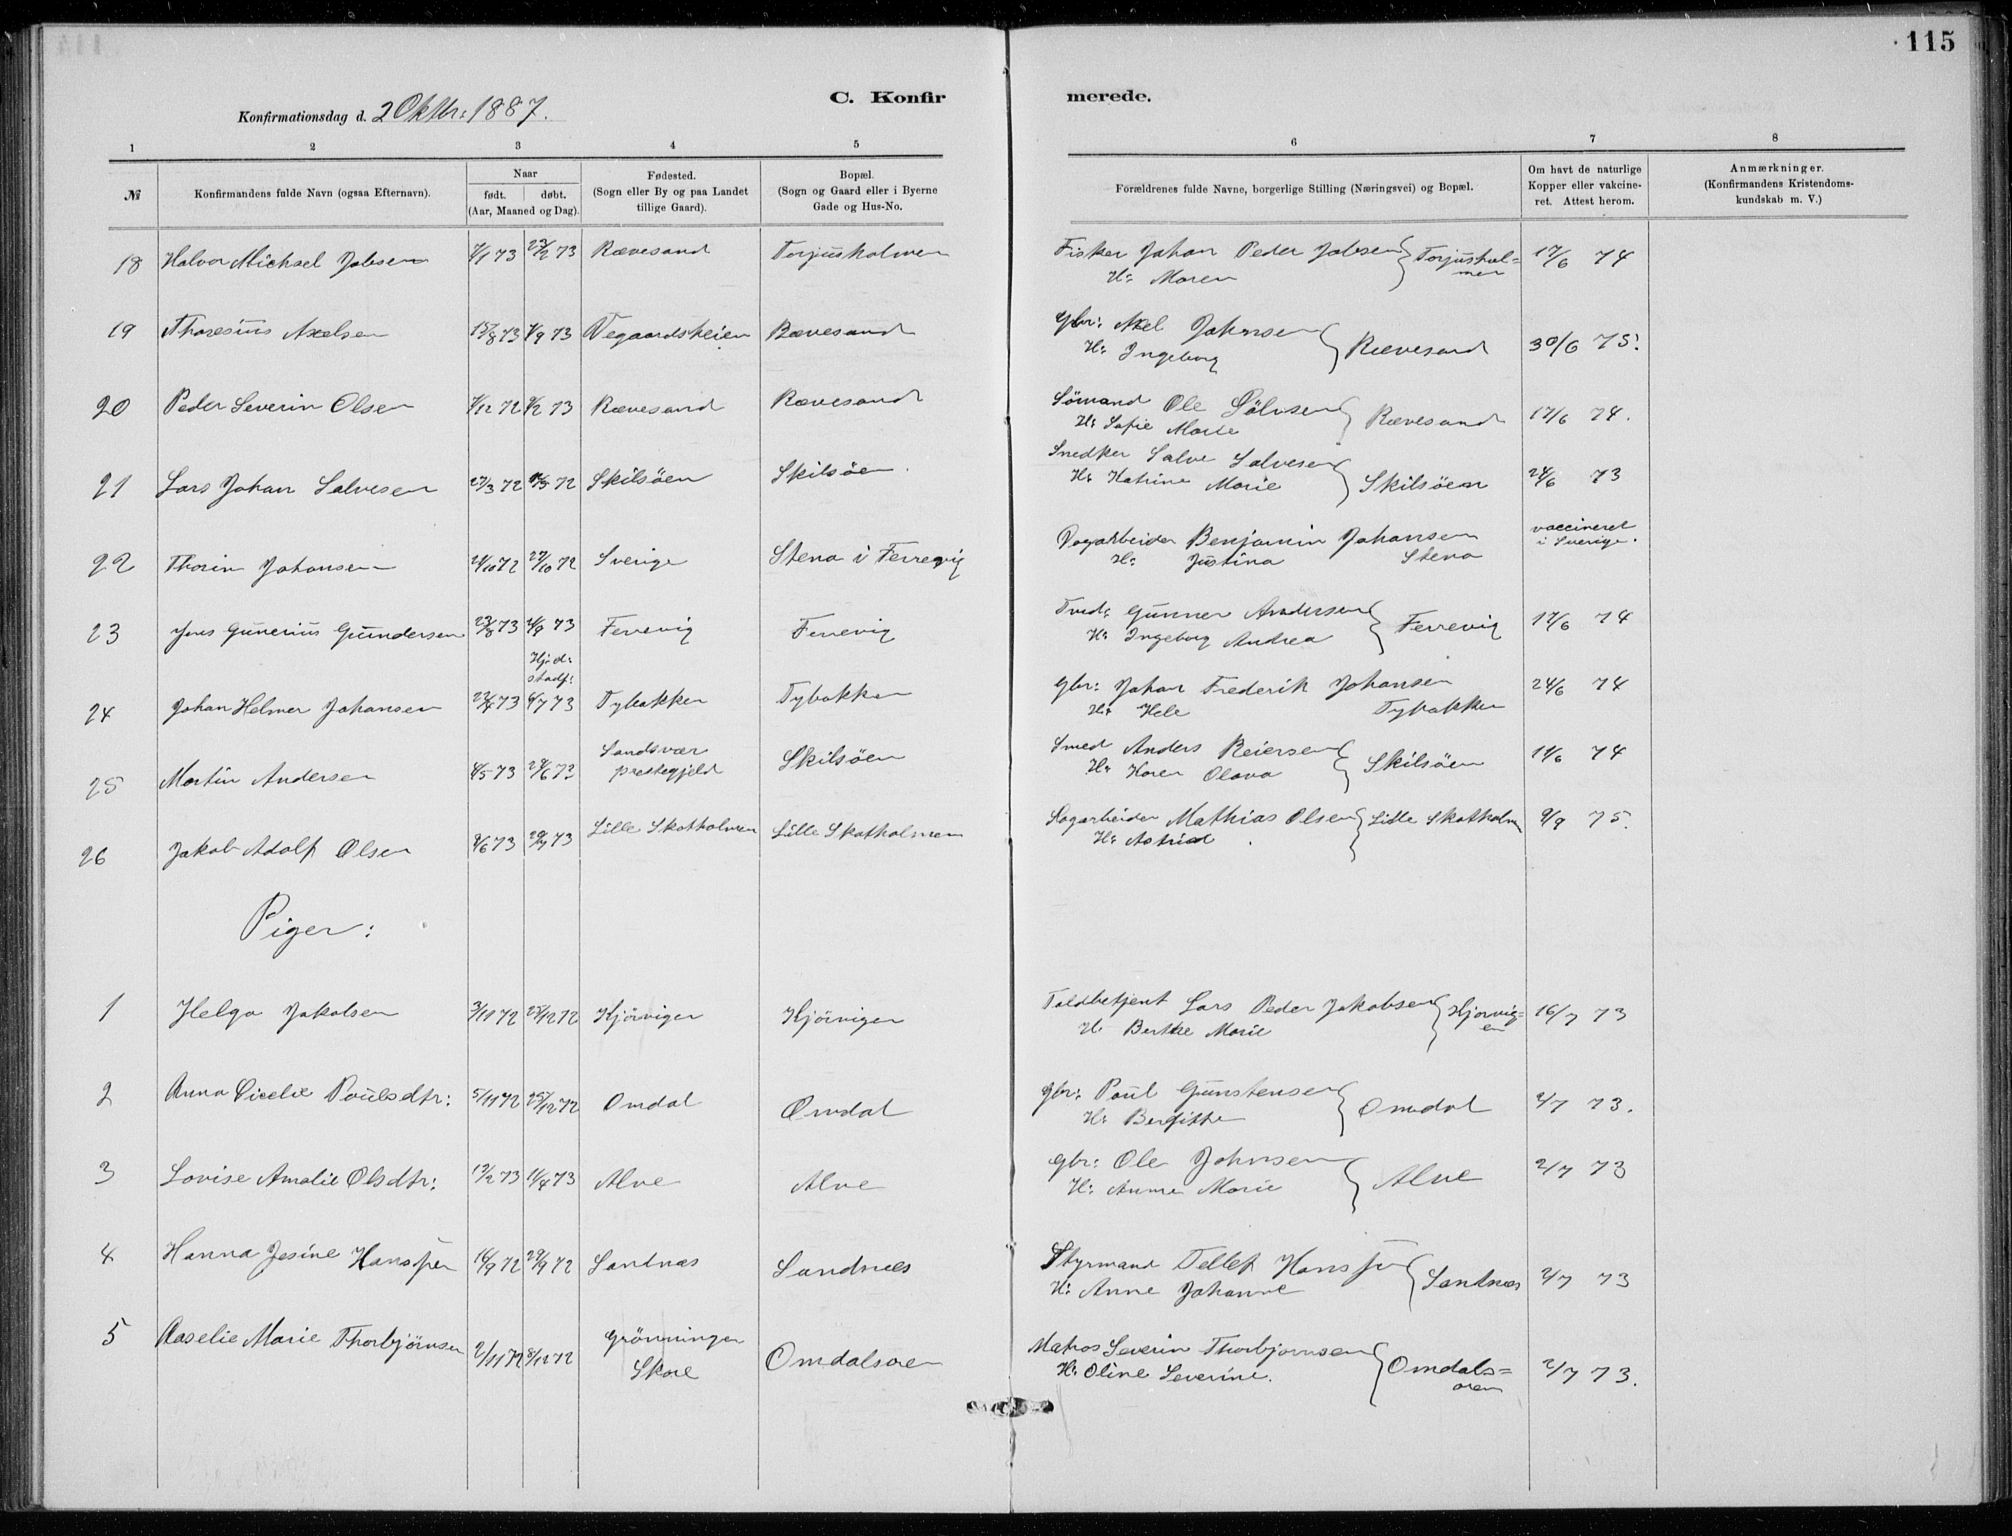 115
C. Konfirmerede.
Konfirmationsdag d. 2 Oktbr: 1887.
1 2 3 4 5 6 7 8
№ Konfirmandens fulde Navn (ogsaa Efternavn). Naar født. døbt. (Aar, Maaned og Dag). Fødested. (Sogn eller By og paa Landet tillige Gaard). Bopæl. (Sogn og Gaard eller i Byerne Gade og Hus-No. Forældrenes fulde Navne, borgerlige Stilling (Næringsvei) og Bopæl. Om havt de naturlige Kopper eller vakcineret. Attest herom. Anmærkninger. (Konfirmandens Kristendomskundskab m. V.)
18 Halvor Michael Jobsen 73 23/2 73 Rævesand Torjusholmen Fisker Johan Peder Jobsen Torjushol=men 17/6 74
H: Maren
19 Thoresius Axelsen 15/8 73 73 Vegaardsheien Rævesand Gbr: Axel Johnsen Rævesand 30/6 75.
H: Ingeborg
20 Peder Severin Olsen 72 73 Rævesand Rævesand Sömand Ole Sölvsen Rævesand 17/6 74.
H: Sofie Marie
21 Lars Johan Salvesen 27/3 72 72 Skilsöen Skilsöen Snedker Salve Salvesen Skilsöen 24/6 73
H: Katrine Marie
22 Thorin Johansen 72 27/10 72 Sverige Stena i Ferrevig Dagarbeider Benjamin Johansen Stena vaccineret i Sverige.
H: Justina
23 Jens Gunerius Gundersen 23/8 73 73 Ferrevig Ferrevig Gunner Andersen Ferrevig 17/6 74
H: Ingeborg Andrea
24 Johan Helmer Johansen 73 Hj: d: stadf: 73 Tybakken Tybakken Gbr: Johan Frederik Johansen Tybakken 24/6 74
H: Hele
25 Martin Andersen 73 Sandsvær prestegjeld Skilsöen Smed Anders Reiersen Skilsöen 74
H: Karen Olava
26 Jakob Adolf Olsen 73 73 Lille Skotholmen Lille Skotholmen Dagarbeider Mathias Olsen Lille Skotholm 75.
H: Astrid
Piger:
1 Helga Jakobsen 3/11 72 25/12 72 Kjörvigen Kjörvigen Toldbetjent Lars Peder Jakobsen Kjorvig=en 16/7 73
H: Berthe Marie
2 Anna Cicelie Poulsdtr: 5/11 72 25/12 72 Omdal Omdal Gbr: Poul Gunstensen Omdal 2/7 73.
H: Bergitte
3 Lovise Amalie Olsdtr: 73 73 Alve Alve Gbr: Ole Johnsen Alve 2/7 73
H: Anne Marie
4 Hanna Jesine Hanssen 16/9 72 29/9 72 Sandnæs Sandnæs Styrmand Tellef Hanssen Sandnæs 2/7 73
H: Anne Johanne
5 Aaselie Marie Thorbjörnsen 2/11 72 8/12 72 Grönningen Skore Omdalsøren Matros Severin Thorbjornsen Omdals=øren 2/7 73.
H: Oline Severine.